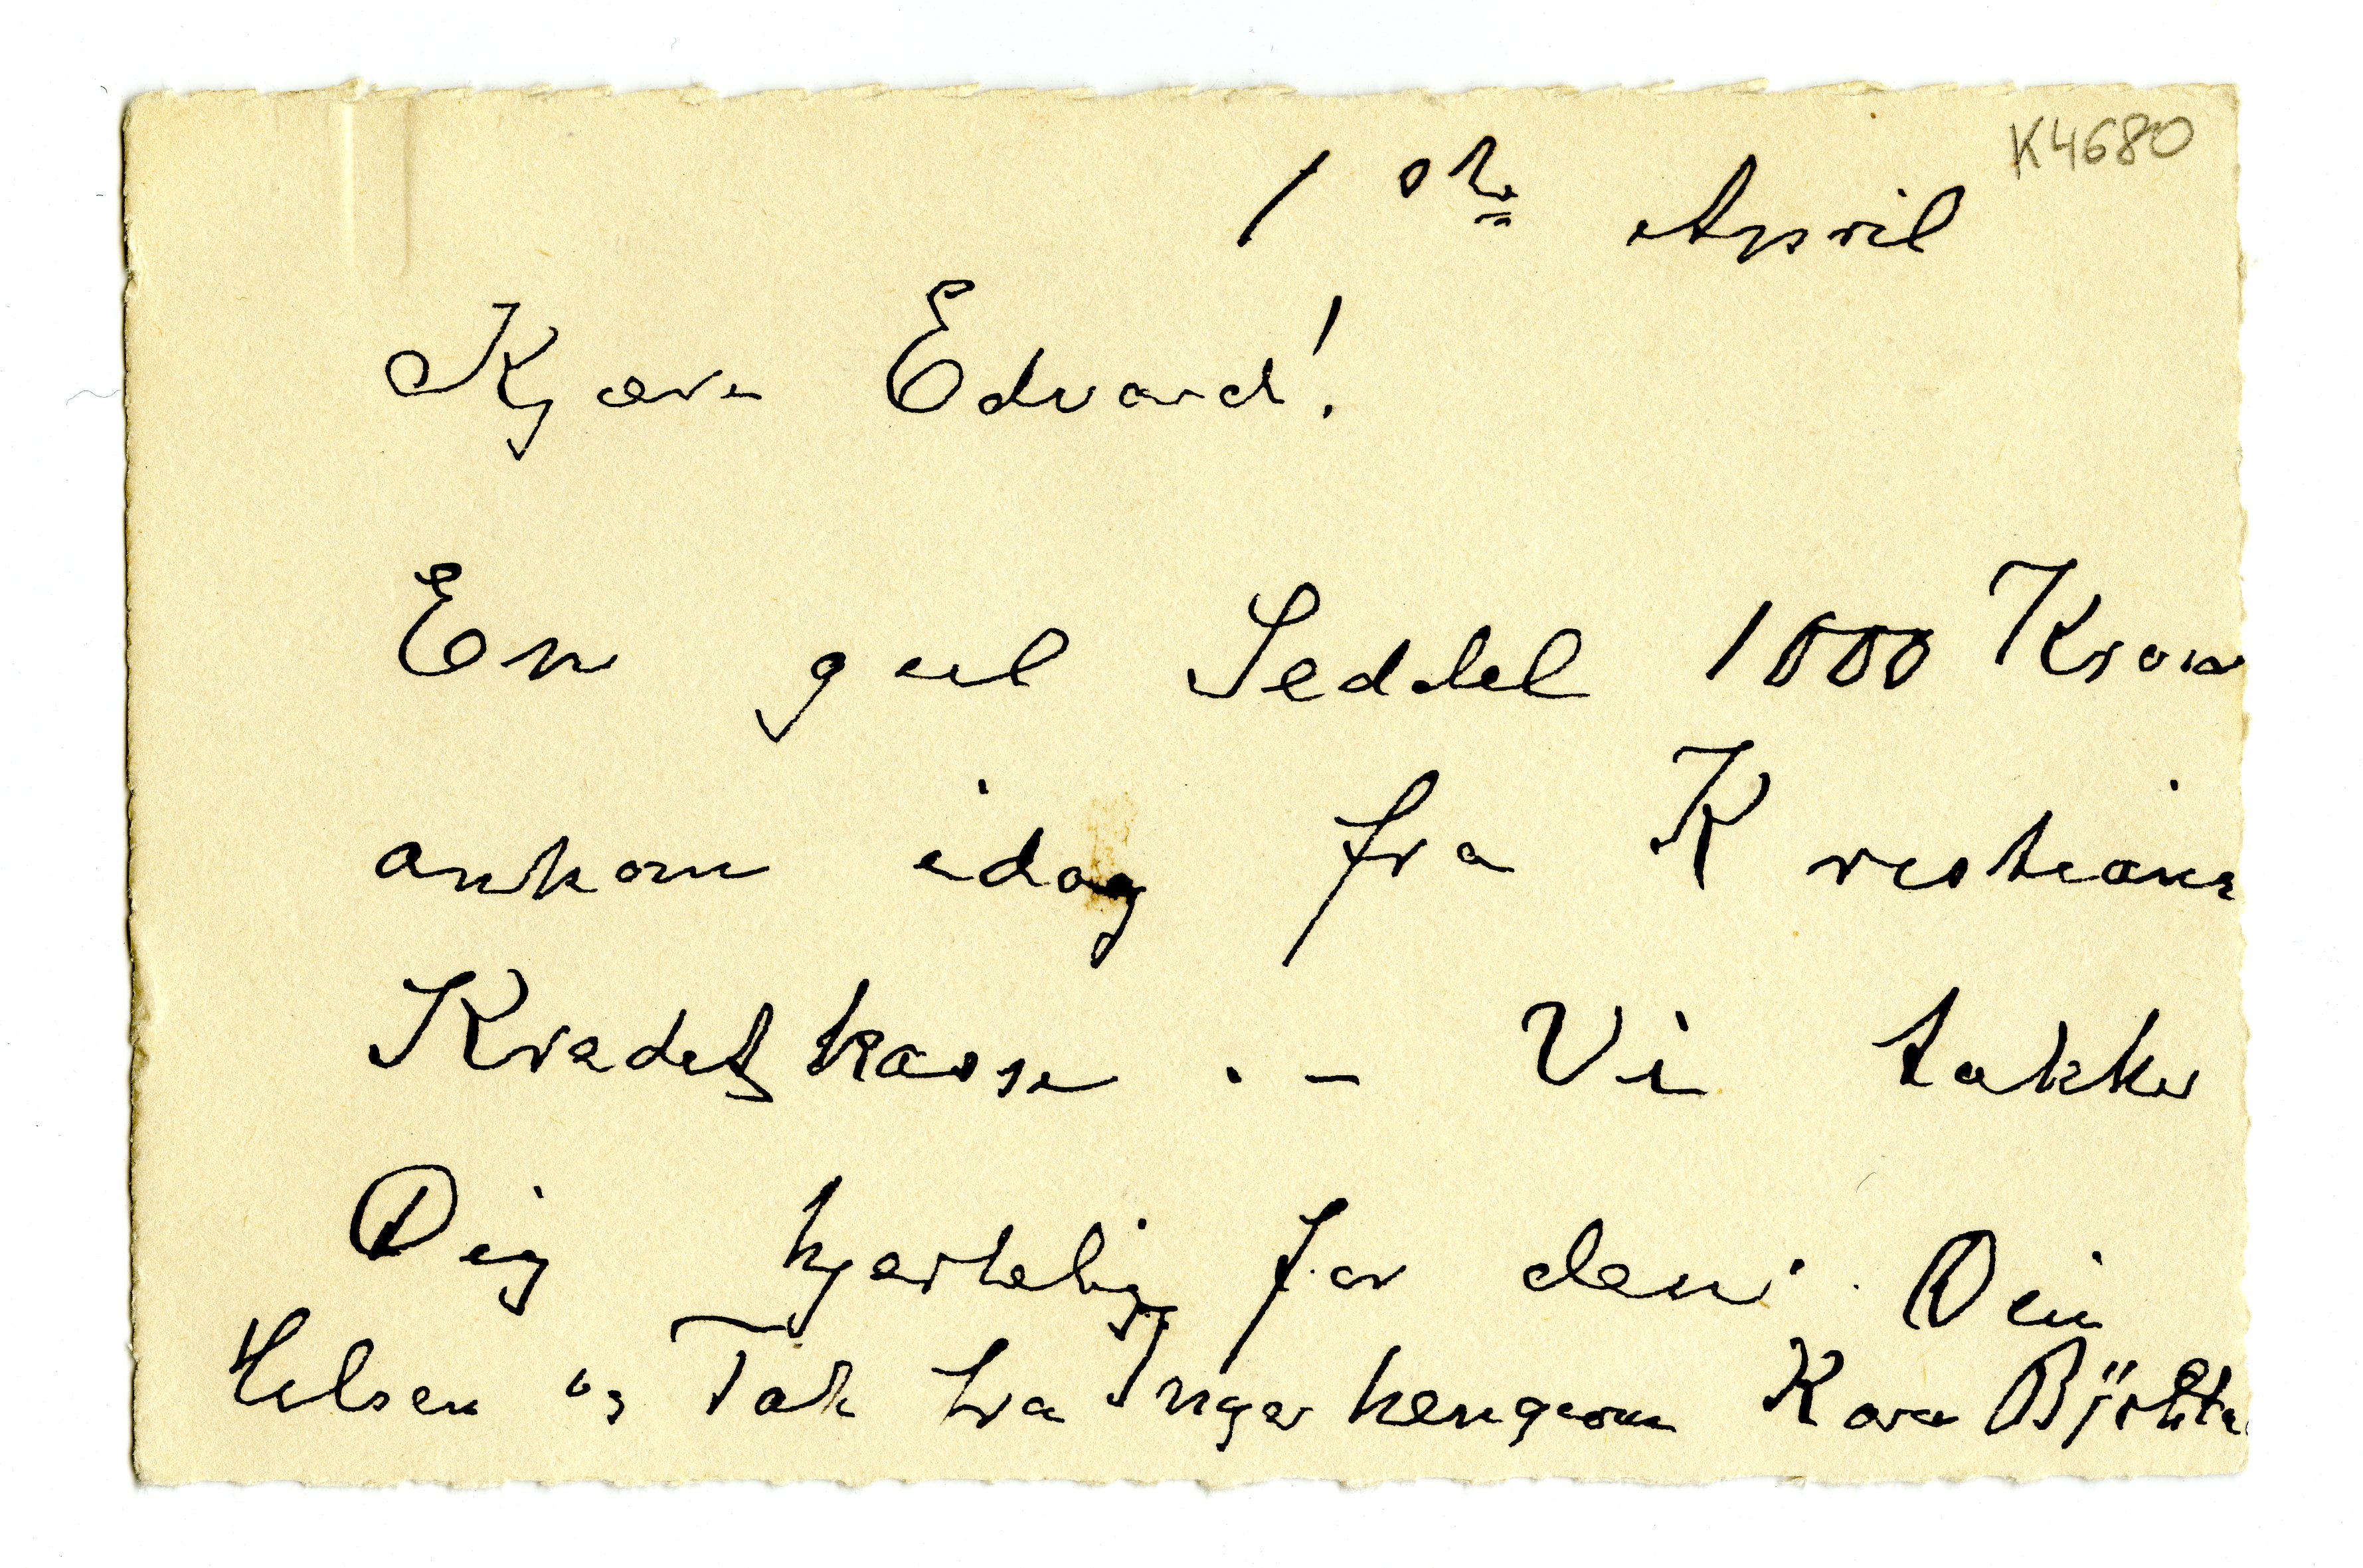 K4680
1ste April
Kjære Edvard!
En gul Seddel 1000 Kron
ankom idag fra Kristiania
Kreditkasse . – Vi takker
Dig hjertelig for den. Din
Hilsen og Tak fra Inger Karen